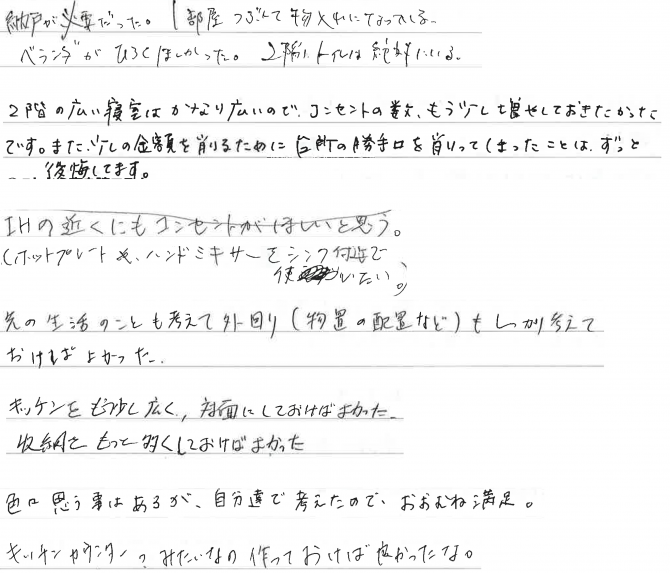 納戸が必要だった。1部屋つぶして物入れになっている。
ベランダがひろくほしかった。2階トイレは絶対にいる。
2階の広い寝室はかなり広いので、コンセントの数、もう少し増やしておきたかった
です。また、少しの金額を削るために台所の勝手口を削ってしまったことは、ずっと
後悔してます。
IHの近くにもコンセントがほしいと思う。
(ホットプレートや、ハンドミキサーをシンク付近で
使いたい)。
先の生活のことも考えて外回り(物置の配置など)もしっかり考えて
おけばよかった.
キッチンをもう少し広く、対面にしておけばよかった.
収納をもっと多くしておけばよかった
色々思う事はあるが、自分達で考えたので、おおむね満足。
キッチンカウンター?みたいなの作っておけば良かったな。